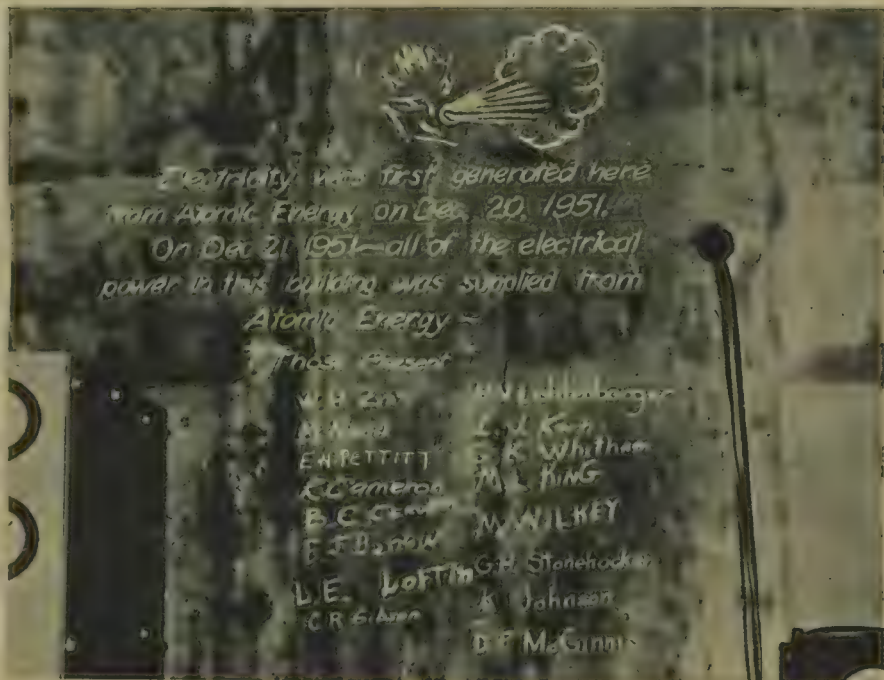 Electricity was first generated here
from Atomic Energy on Dec. 20, 1951.
On Dec 21 1951—all of the electrical
power in this building was supplied from
Atomic Energy —
Those Present
W. H. Zinn
E.W. PETTITT
K. Cameron
B. C.
L.E. LOFTIN
C R Gibson
L. J. Koch
G K Whitham
M. KING
M. WILKEY
G.H. Stonehocker
K Johnson
D E McGinnis